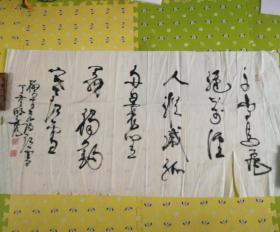 千山鳥飛
絕萬徑
人踪滅孤
舟蓑笠
翁獨釣
寒江雪
江雪